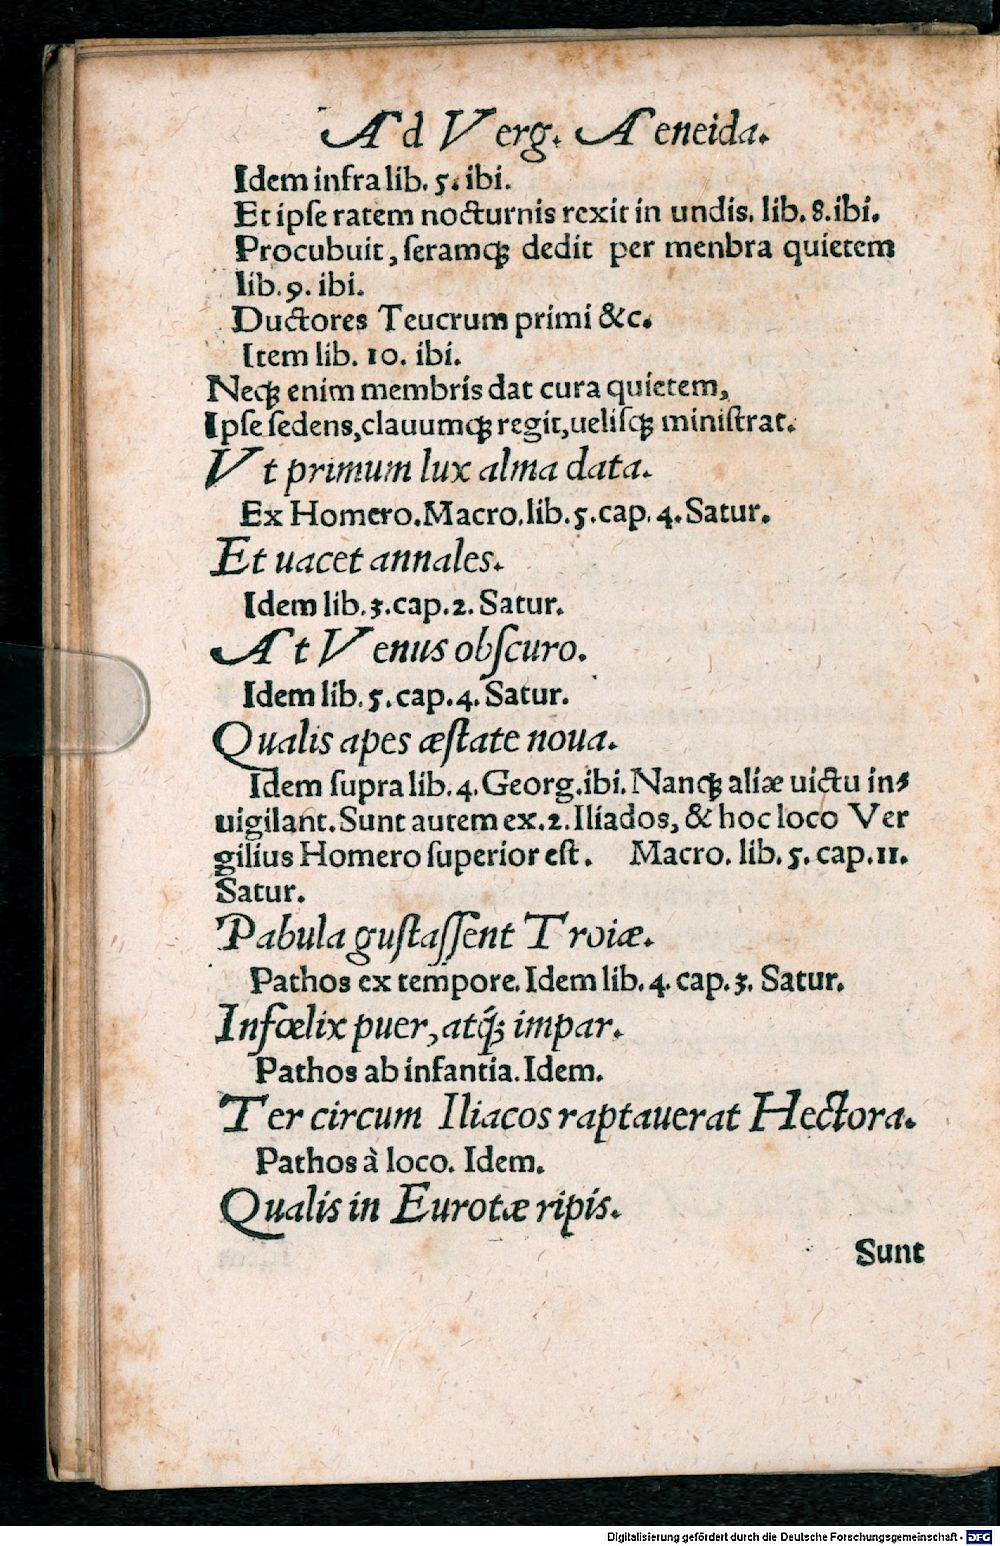 Ad Verg. Aeneida.
Idem infra lib. 5. ibi.
Et ipſe ratem nocturnis rexit in undis. lib. 8. ibi.
Procubuit, ſeramq́ꝫ dedit per menbra quietem
lib. 9. ibi.
Ductores Teucrum primi &c.
Item lib. 10. ibi.
Neqꝫ enim membris dat cura quietem,
Ipſe ſedens, clauumqꝫ regit, ueliſqꝫ miniſtrat.
Vt primum lux alma data.
Ex Homero. Macro. lib. 5. cap. 4. Satur.
Et uacet annales.
Idem lib. 3. cap. 2. Satur.
At Venus obſcuro.
Idem lib. 5. cap. 4. Satur.
Qualis apes æſtate noua.
Idem ſupra lib. 4. Georg. ibi. Nanqꝫ aliæ uictu in⸗
uigilant. Sunt autem ex. 2. Iliados, & hoc loco Ver
gilius Homero ſuperior eſt. Macro. lib. 5. cap. 11.
Satur.
Pabula guſtaſſent Troiæ.
Pathos ex tempore. Idem lib. 4. cap. 3. Satur.
Infœlix puer, atq́ꝫ impar.
Pathos ab infantia. Idem.
Ter circum Iliacos raptauerat Hectora.
Pathos à loco. Idem.
Qualis in Eurotæ ripis.
Sunt
Digitalisierung gefördert durch die Deutsche Forschungsgemeinschaft - DFG